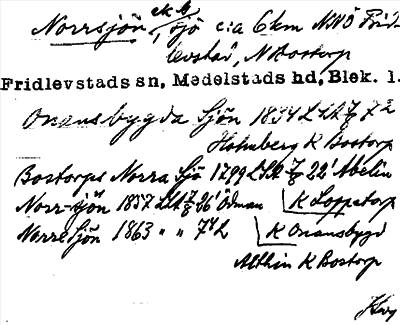 Norrsjön ek bl, sjö c:a 6 km NNÖ Frid-
levstad, N Bostorp
Fridlevstads sn, Medelstads hd, Blek. l.
Onansbygda Sjön 1834 LSA
Holmberg K Bostorp
Bostorps Norra Sjö 1799 LSA 22' Abelin
Norr-sjön 1837 LSA 26' Ödman K Loppetorp
Norre Sjön 1863 " " K Onansbygd
Althin K Bostorp